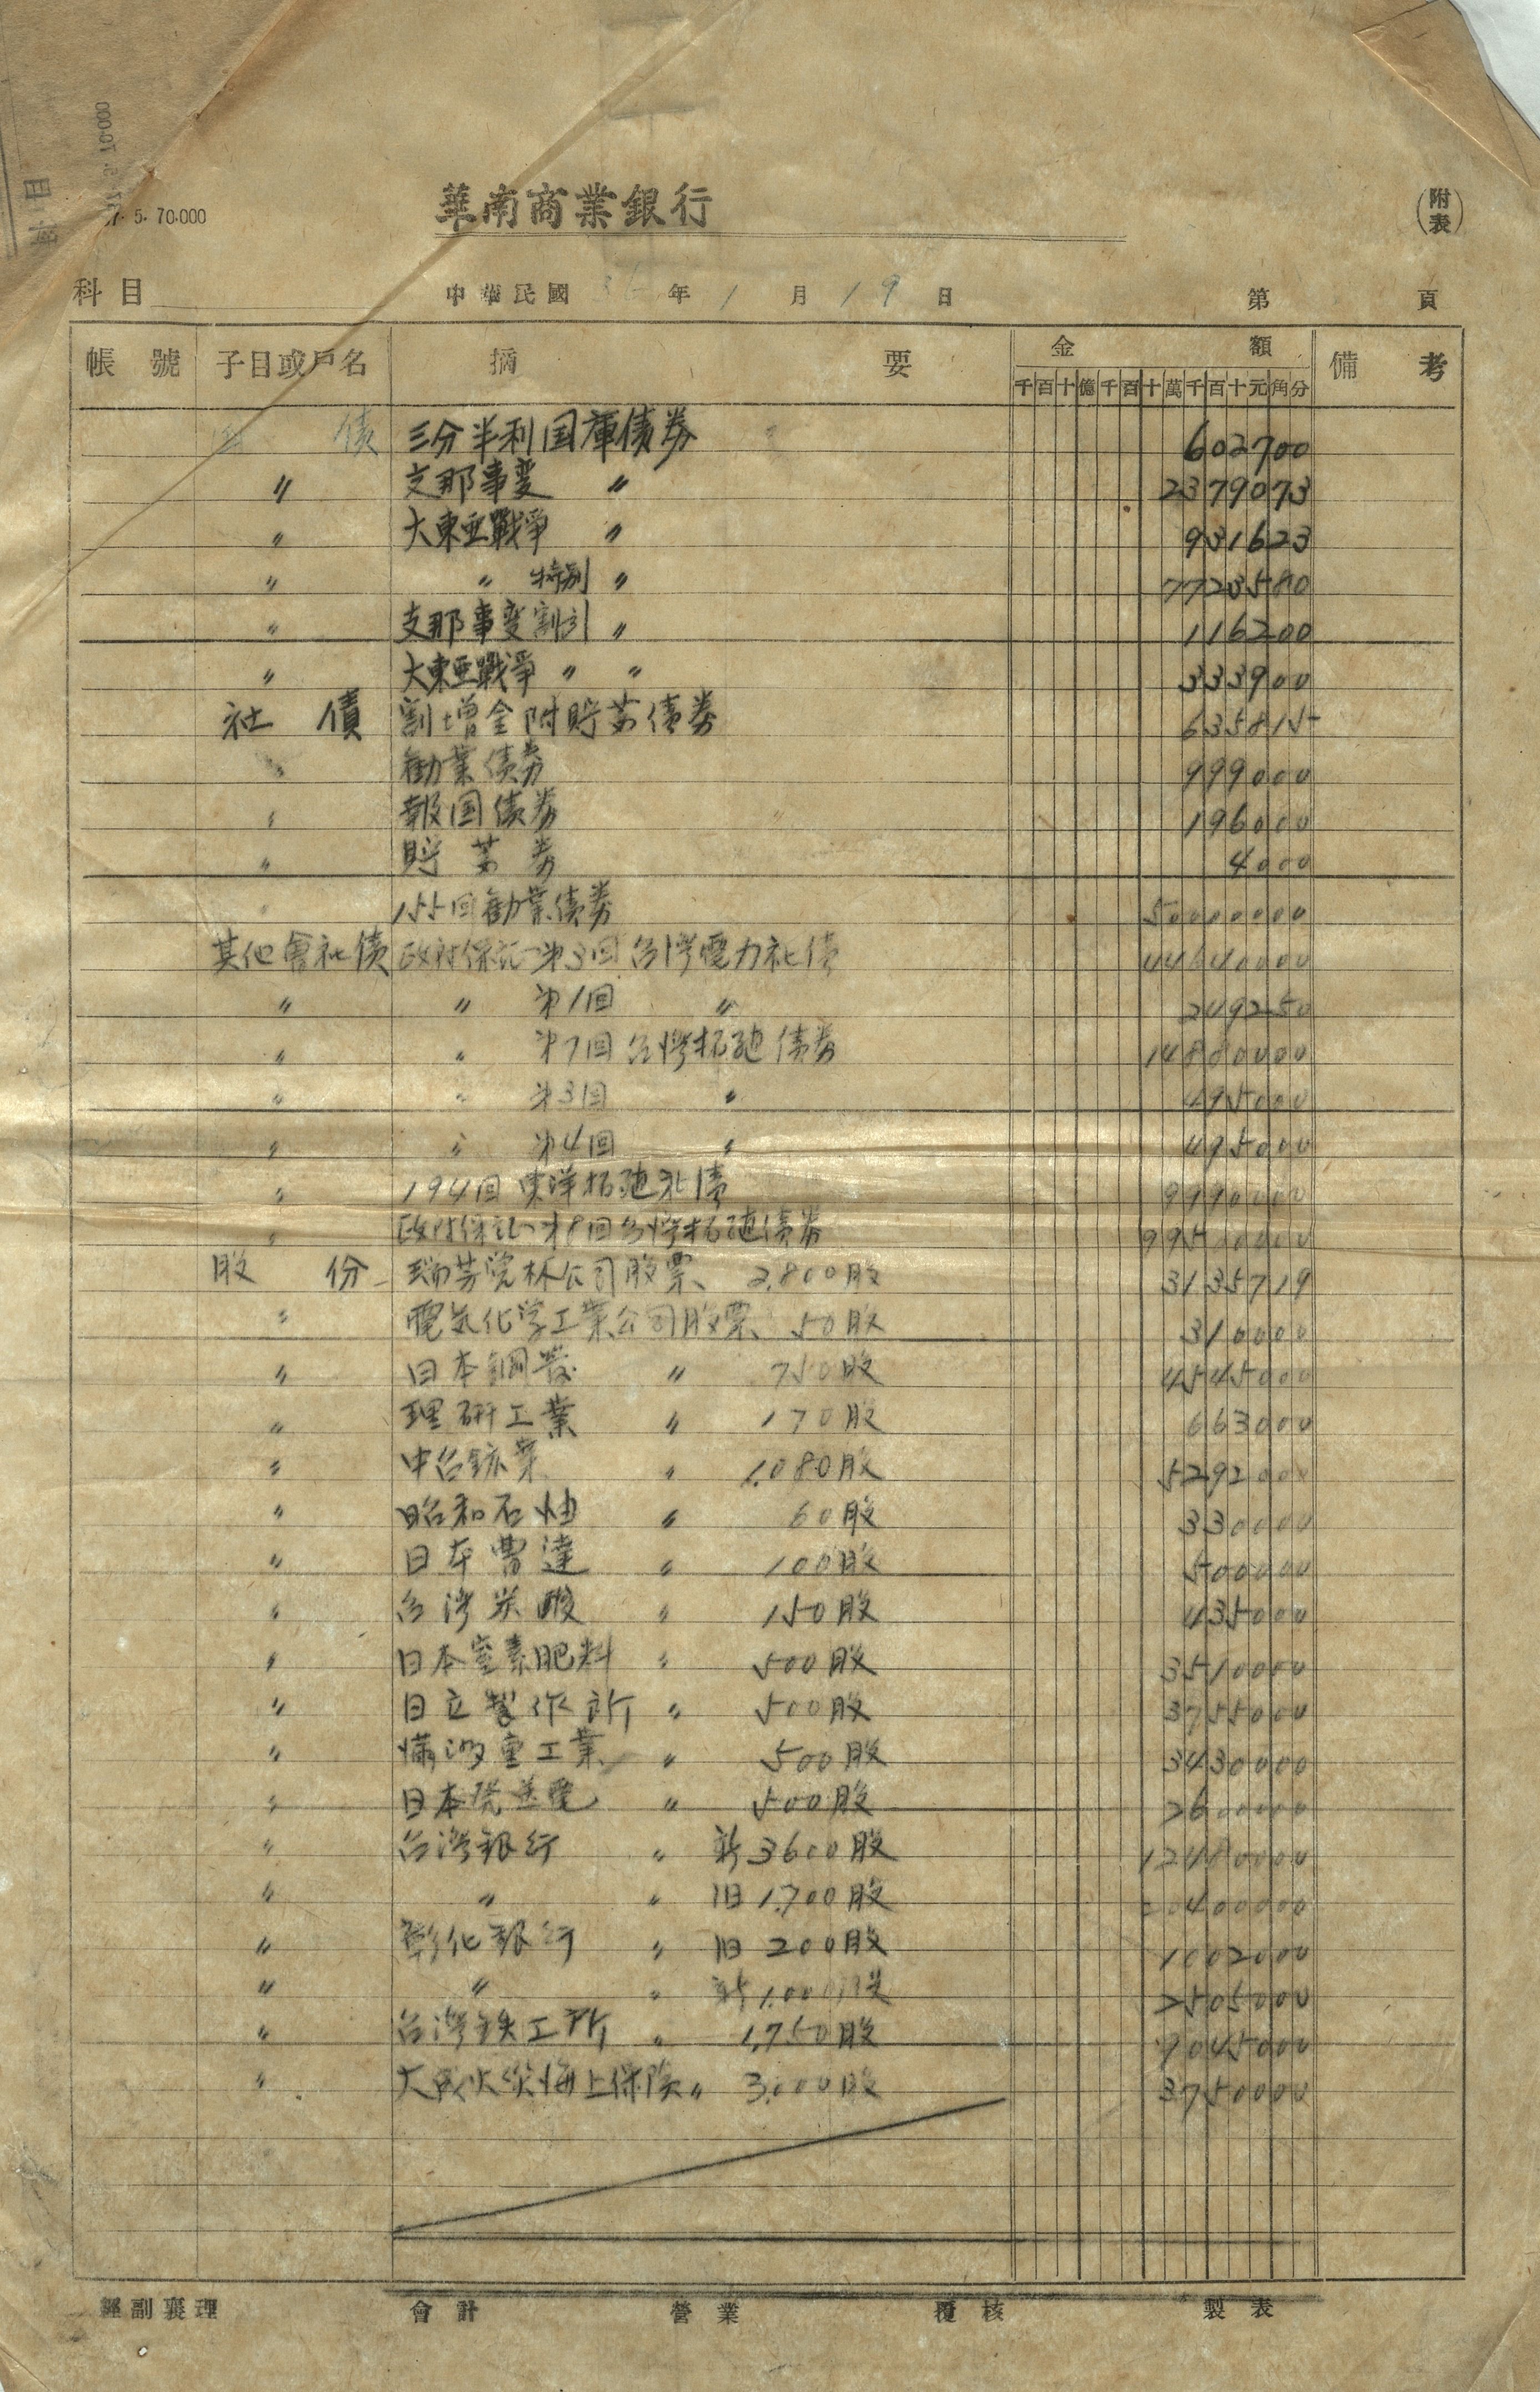 5. 70.000
華南商業銀行
(附表)
科目
中華民國 36 年 1 月 19 日
第 頁
帳號 子目或戶名 摘要 金額 備考
千百十億千百十萬千百十元角分
債 三分半利国庫債券 602700
〃 支那事変 〃 2379073
〃 大東亜戰爭 〃 931623
〃 〃 特別 〃 7723580
〃 支那事变割引 〃 116200
〃 大東亜戰爭 〃 〃 333900
社債 割増金附貯蓄債券 635815
〃 勧業債券 999000
〃 報国債券 196000
〃 貯蓄券 4000
〃 155回勧業債券 50000000
其他會社債 政府保証第3回台湾電力社債 44640000
〃 〃 第1回 〃 249250
〃 〃 第7回台湾拓殖債券 14880000
〃 〃 第3回 〃 495000
〃 〃 第4回 〃 495000
〃 194回東洋拓殖社債 9990000
〃 政府保証第8回台湾拓殖債券 99500000
股份 瑞芳 公司股票 2,800股 3135719
〃 電気化学工業公司股票 50股 310000
〃 日本鋼管 〃 750股 4545000
〃 理研工業 〃 170股 663000
〃 中台鉱業 〃 1,080股 5292000
〃 昭和石油 〃 60股 330000
〃 日本曹達 〃 100股 500000
〃 台湾炭酸 〃 150股 435000
〃 日本窒素肥料 〃 500股 3510000
〃 日立製作所 〃 500股 3755000
〃 重工業 〃 500股 3430000
〃 日本発送電 〃 500股 2600000
〃 台湾銀行 〃 新3600股 12480000
〃 〃 〃 旧1,700股 0400000
〃 彰化銀行 〃 旧200股 1002000
〃 〃 〃 新1,000股 2505000
〃 台湾鉄工所 〃 1,750股 9045000
〃 大成火災海上保険〃 3,000股 3750000
經副襄理 會計 營業 覆核 製表